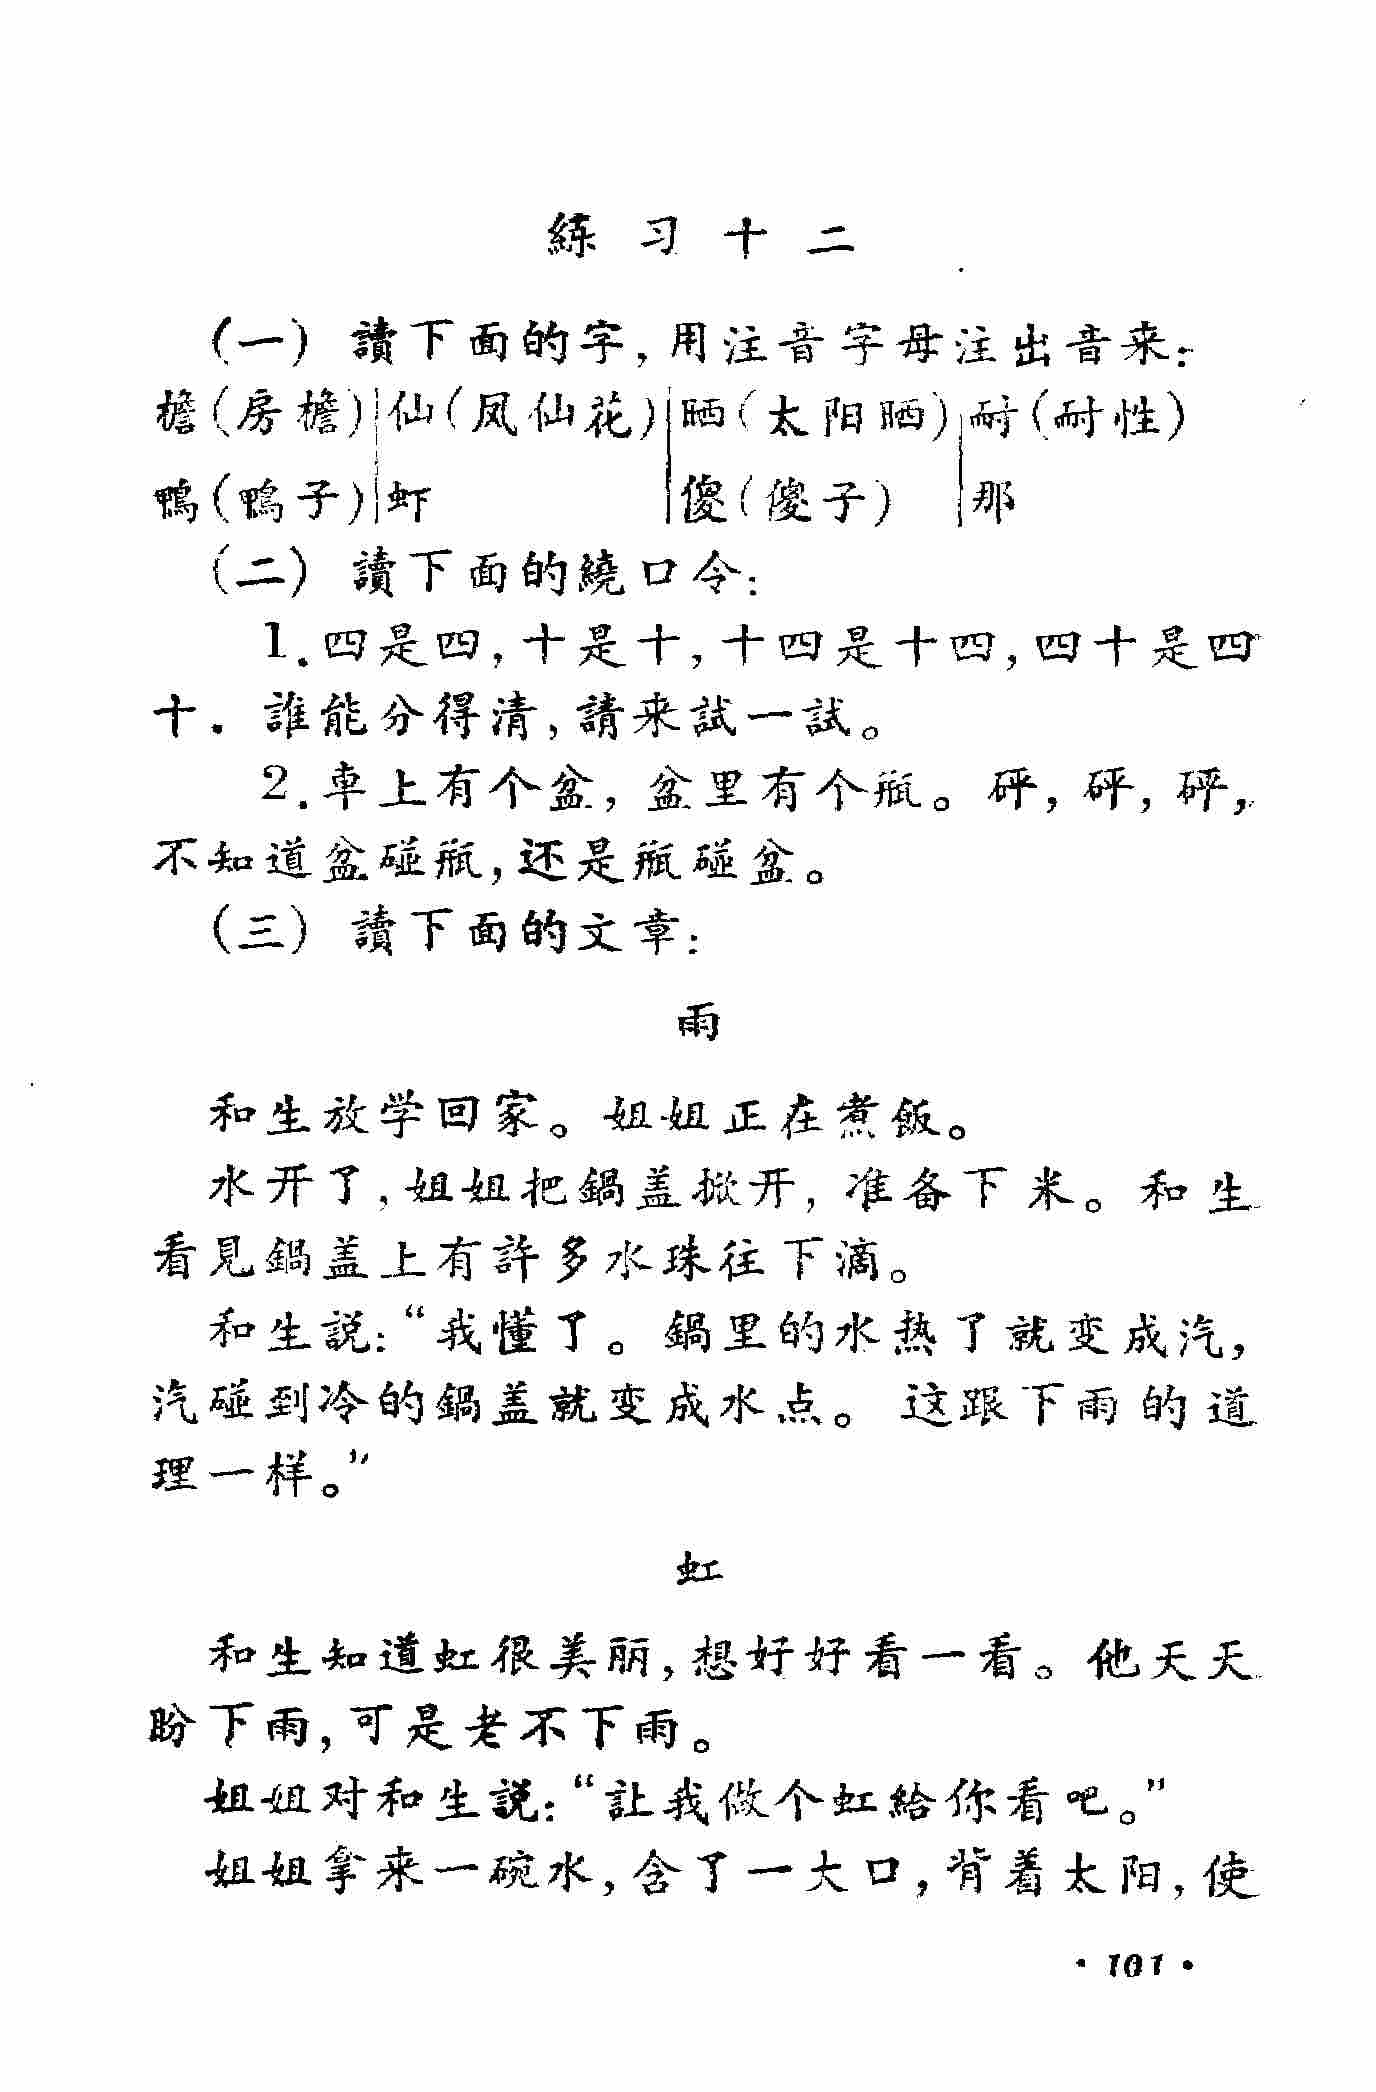 練习十二
(一) 讀下面的字,用注音字母注出音来:
檐(房檐)|仙(凤仙花)|晒(太阳晒)|耐(耐性)
鴨(鴨子)|虾|傻(傻子)|那
(二) 讀下面的繞口令:
1.四是四,十是十,十四是十四,四十是四
十. 誰能分得清,請来試一試。
2.車上有个盆, 盆里有个瓶。砰, 砰, 砰,
不知道盆碰瓶,还是瓶碰盆。
(三) 讀下面的文章:
雨
和生放学回家。姐姐正在煮飯。
水开了,姐姐把鍋盖掀开, 准备下米。和生
看見鍋盖上有許多水珠往下滴。
和生説:“我懂了。鍋里的水热了就变成汽,
汽碰到冷的鍋盖就变成水点。这跟下雨的道
理一样。”
虹
和生知道虹很美丽,想好好看一看。他天天
盼下雨,可是老不下雨。
姐姐对和生説:“註我做个虹給你看吧。”
姐姐拿来一碗水,含了一大口,背着太阳,使
·101·